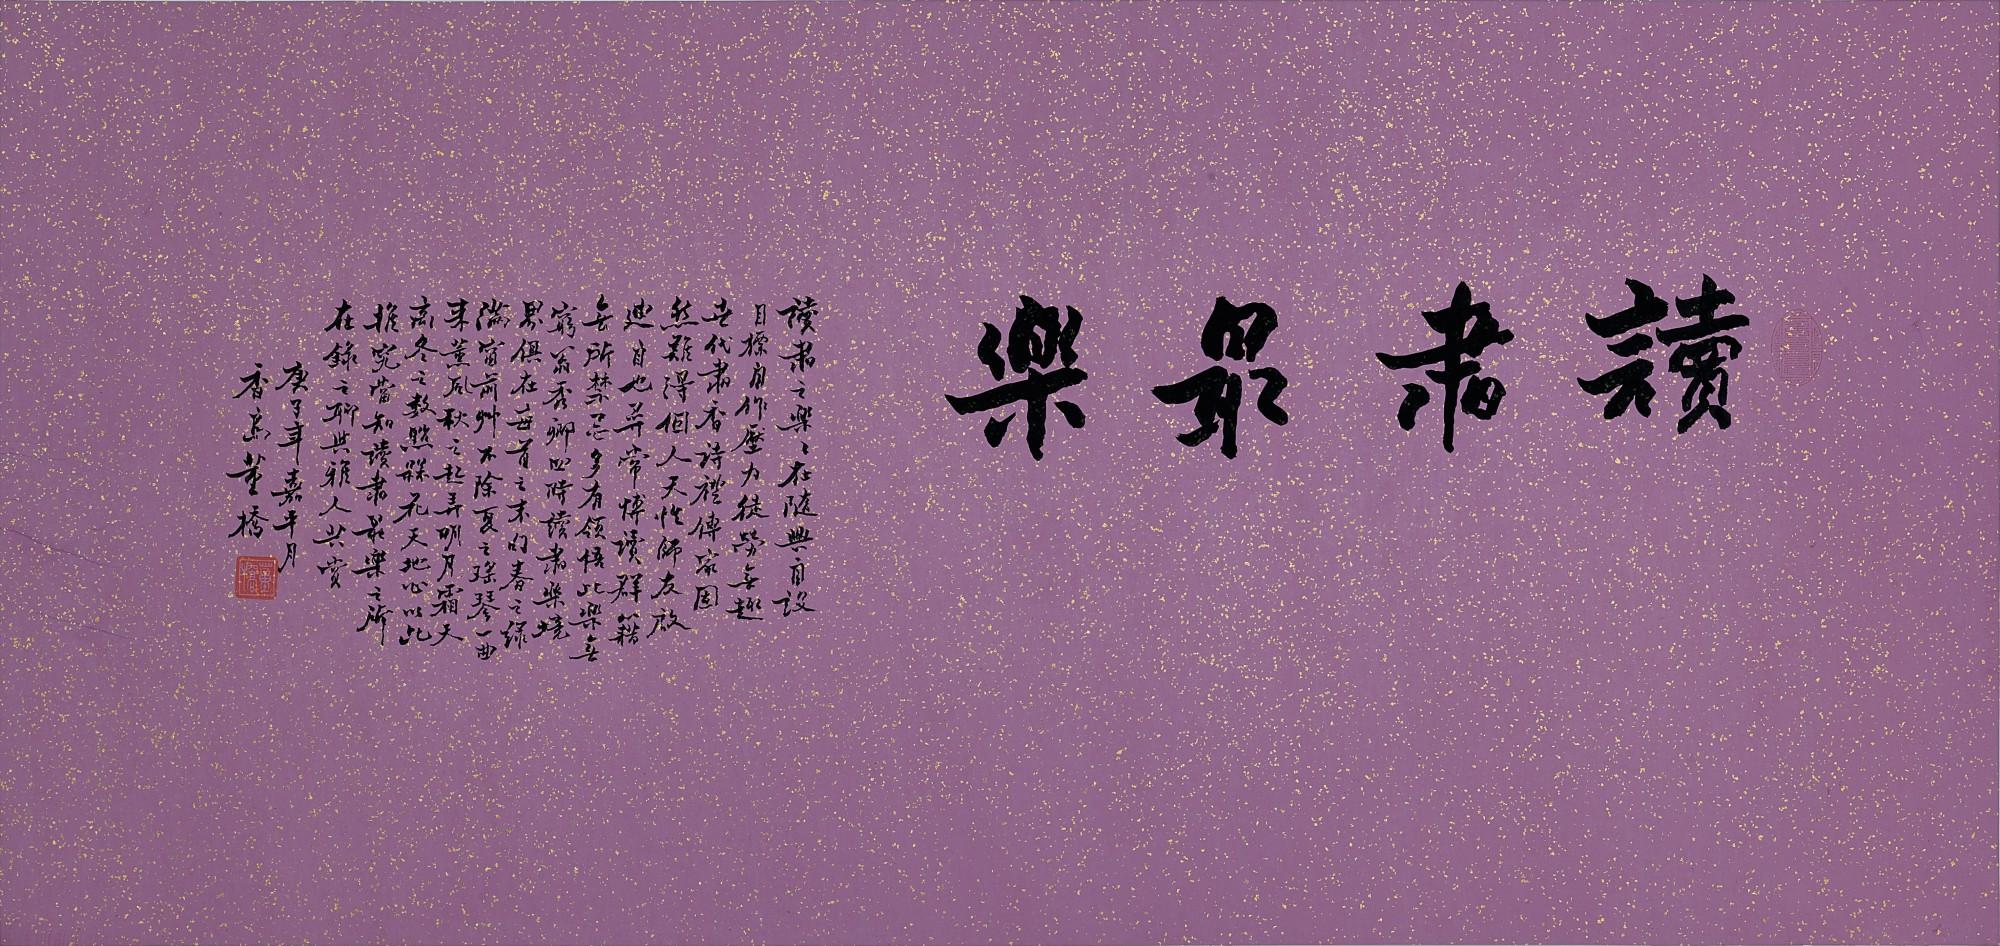 讀書最樂
讀書之樂〻在隨興自設
目標自作壓力徒勞無趣
世代書香詩禮傳家固
然難得個人天性師友啟
迪自也尋常博讀群籍
無所禁忌多有領悟此樂無
窮翁秀卿四時讀書樂境
界俱在每首之末句春之綠
滿窗前艸不除夏之瑤琴一曲
来薰風秋之起弄明月霜天
高冬之數點槑花天地心以此
推究當知讀書最樂之所
在錄之聊與雅人共賞
庚子年嘉平月
香島董橋
董橋